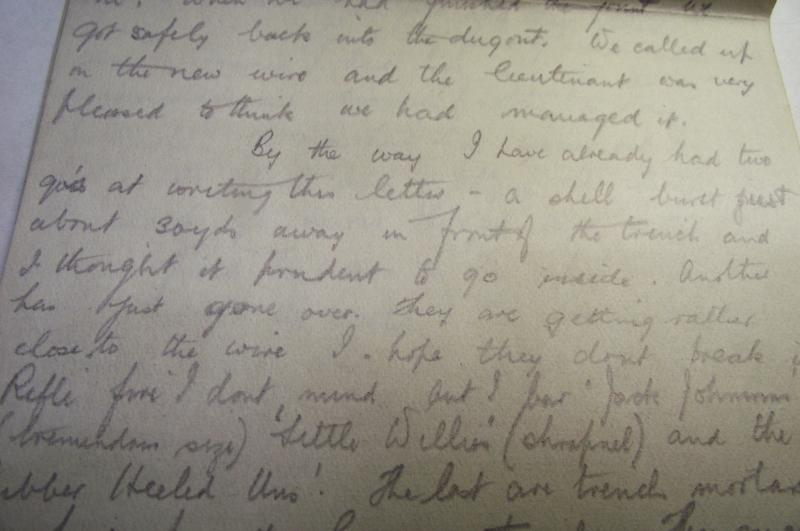 When we had finished the joint we
got safely back into the dugout. We called up
on the new wire and the lieutenant was very
pleased to think we had managed it.
By the way I have already had two
go's at writing this letter - a shell burst just
about 30yds away in front of the trench and
I thought it prudent to go inside. Another
has just gone over. They are getting rather
close to the wire I hope they dont break
Rifle fire I dont mind but I bar "Jack Johnsons
(tremendous size) "Little Willies" (shrapnel) and the
ubber Heeled Uns'. The last are trench mortar